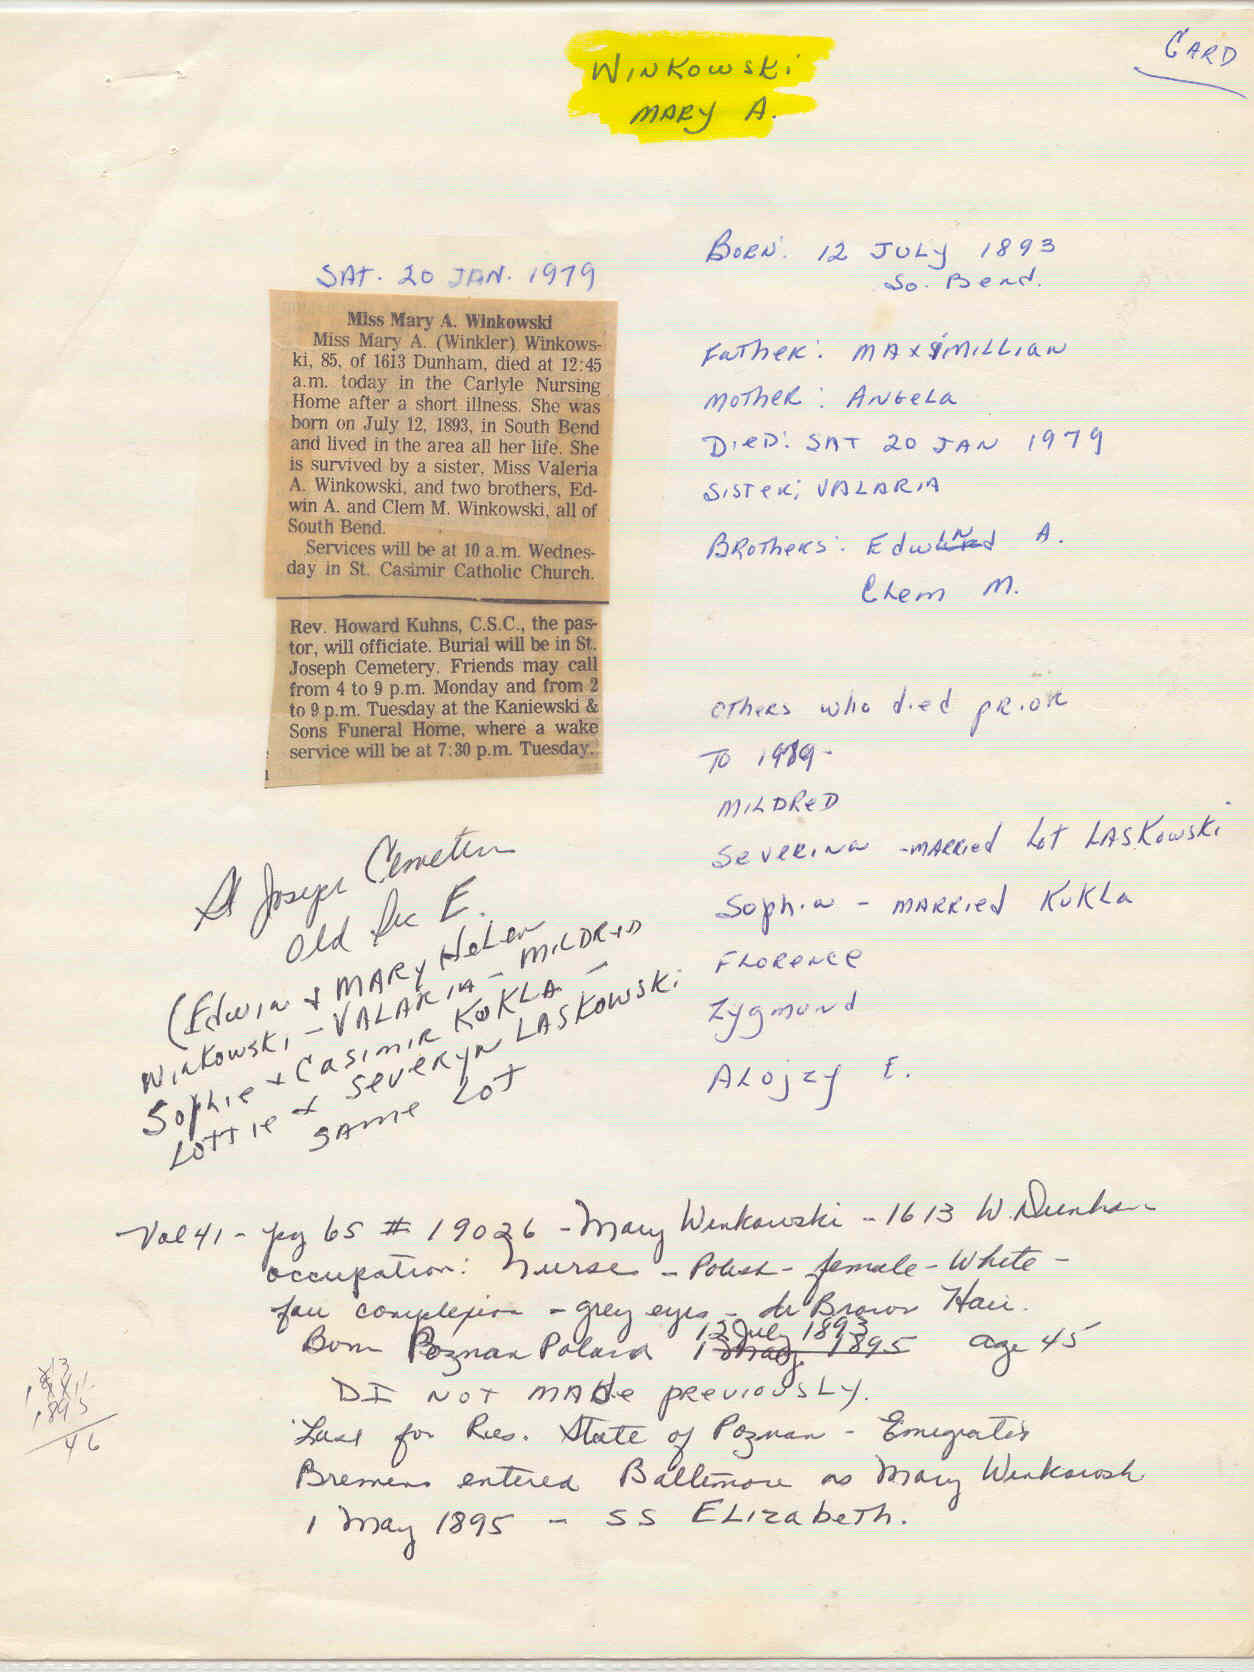 CARD
WINKOWSKI
MARY A.
SAT. 20 JAN. 1979
Miss Mary A. Winkowski
Miss Mary A. (Winkler) Winkows-
ki, 85, of 1613 Dunham, died at 12:45
a.m. today in the Carlyle Nursing
Home after a short illness. She was
born on July 12, 1893, in South Bend
and lived in the area all her life. She
is survived by a sister, Miss Valeria
A. Winkowski, and two brothers, Ed-
win A. and Clem M. Winkowski, all of
South Bend.
Services will be at 10 a.m. Wednes-
day in St. Casimir Catholic Church.
Rev. Howard Kuhns, C.S.C., the pas-
tor, will officiate. Burial will be in St.
Joseph Cemetery. Friends may call
from 4 to 9 p.m. Monday and from 2
to 9 p.m. Tuesday at the Kaniewski &
Sons Funeral Home, where a wake
service will be at 7:30 p.m. Tuesday.
BORN: 12 JULY 1893
So. Bend.
FATHER: MAXIMILLIAN
MOTHER: ANGELA
DIED: SAT 20 JAN 1979
SISTER; VALARIA
BROTHERS: Edwin A.
Clem M.
OTHERS who died PRIOR
TO 1989-
MILDRED
SEVERINA -MARRIED Lot LASKOWSKI
Sophia - MARRIED KUKLA
FLORENCE
Zygmund
ALOJZY E.
St Joseph Cemetery
Old Sec E.
(EDWIN + MARY HELEN
WINKOWSKI - VALARIA - MILDRED
SOPHIE + CASIMIR KUKLA -
LOTTIE + SEVERYN LASKOWSKI
SAME LOT
Vol 41 - pg 65 # 19026 - Mary Winkowski - 1613 W. Dunham
occupation: Nurse - Polish - female - White -
fair complexion - grey eyes - dr Brown Hair.
12 July 1893
Born Poznan Poland 1 May 1895 age 45
DI NOT MADE PREVIOUSLY.
Last for Res. State of Poznan - Emigrated
Bremens entered Baltimore as Mary Winkowski
1 May 1895 - SS ELIZABETH.
1895
46